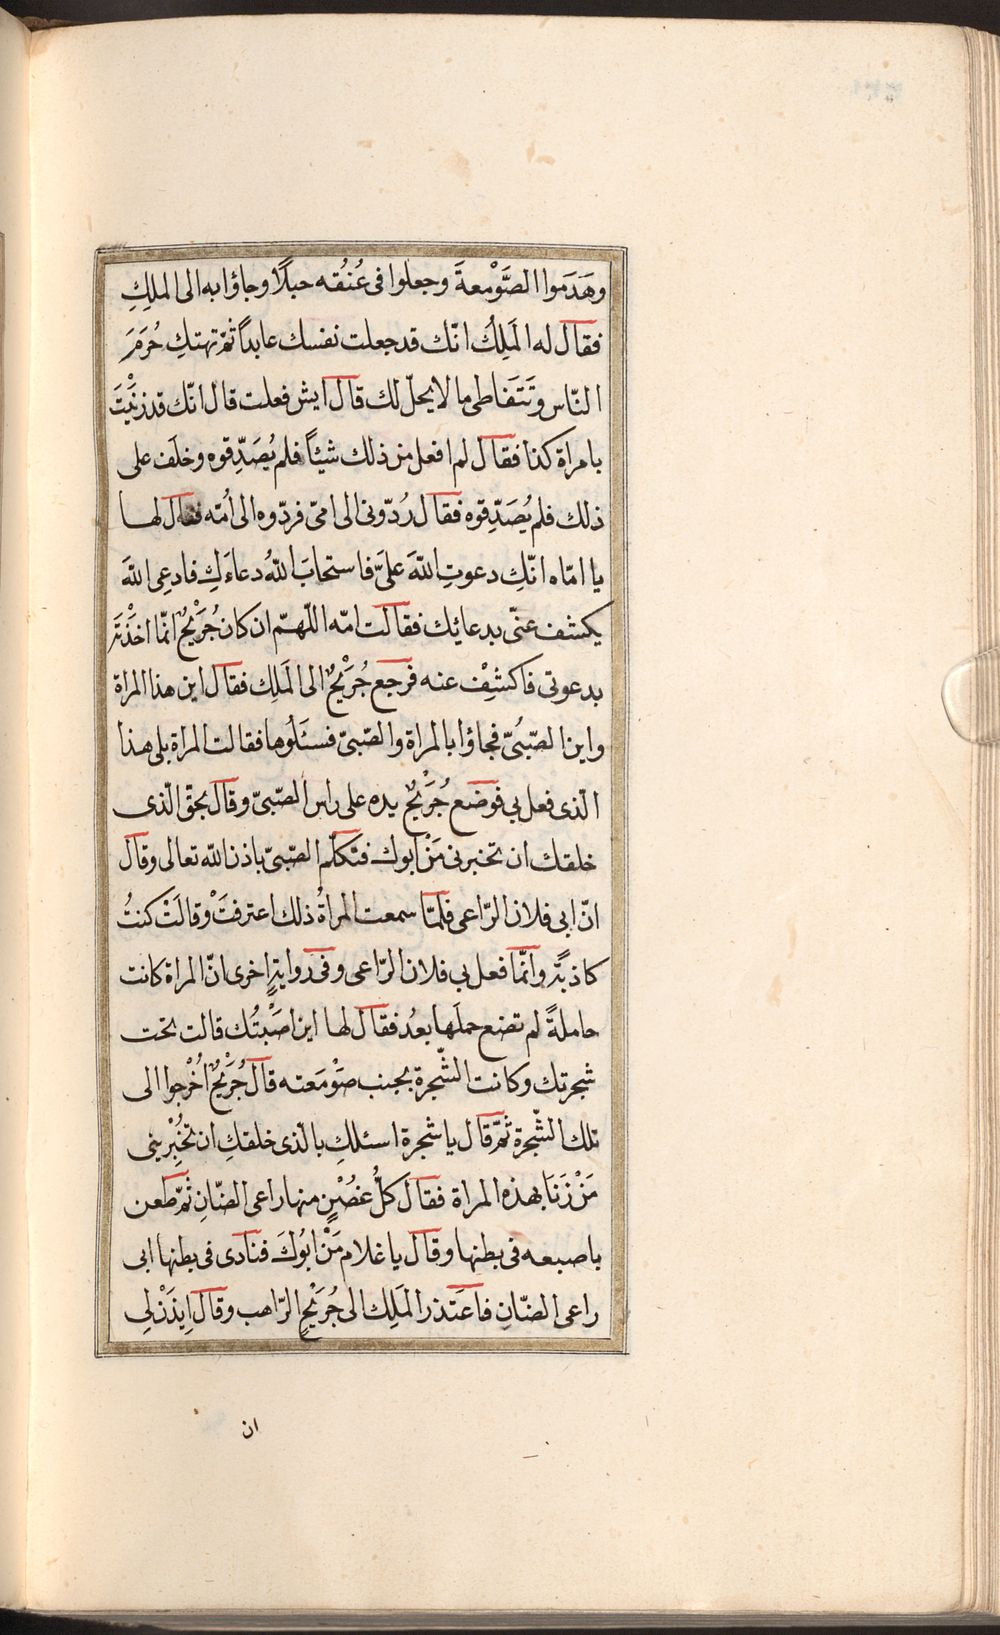 وهَدَموا الصَّوْمعةَ وجعلوا فى عُنُقه حبلًا وجاؤا به الى الملِكِ
فقال له المَلِكُ انّك قد جعلت نفسك عابداً ثمّ تهتكِ حُرَمَ
النّاس وتَتَفاطى ما لا يحلّ لك قال ايش فعلت قال انّك قد زنَيْتَ
بامراة كذا فقال لم افعل من ذلك شيئاً فلم يُصَدِّقوه وخلَف على
ذلك فلم يُصَدِّقوه فقال رُدّونى الى امّى فردّوه الى اُمّه فقال لها
يا امّاه انّكِ دعوتِ اللّهَ علىَّ فاستجابَ اللّهُ دعاءَكِ فادعِى اللّهَ
يكشف عنّى بدعائِك فقالت امّه اللّهمّ ان كان جُرَيْجٌ انّما اخَذْتَه
بدعوتى فاكشِفْ عنه فرجع جُرَيْجٌ الى المَلِك فقال اين هذا المراة
واين الصّبُىّ فجاؤا بالمراة والصّبىّ فسئَلُوها فقالت المراة بلى هذا
الّذى فعل بي فوضع جُرَيْجٌ يده على راس الصّبىّ وقال بحقّ الّذى
خلقك ان تخبرنى مَنْ ابوك فتكلّم الصّبىّ باذن اللّه تعالى وقال
انّ ابى فلان الرّاعى فلمّا سمعت المراةُ ذلك اعترفتْ وقالَتْ كنتُ
كاذبةً وانّما فعل بي فلان الرّاعى وفى روايةٍ اخرى انّ المراة كانت
حاملةً لم تضع حملَها بعدُ فقال لها اين اصَبْتُك قالت تحت
شجرتك وكانت الشّجرة بجنب صَوْمَعته قال جُرَيْجٌ اُخْرجوا الى
تلك الشّجرة ثمّ قال يا شجرة اسئلكِ بالّذى خلقكِ ان تخْبِرينى
مَنْ زَنَا بهذه المراة فقال كلُّ غصْنٍ منها راعى الضّانِ ثمّ طعن
باصبعه فى بطنها وقال يا غلام مَنْ ابُوكَ فنادى فى بطنها ابى
راعى الضّانِ فاعتَذر المَلِك الى جُرَيْجٍ الرّاهب وقال اِيذَنْ لِى
ان